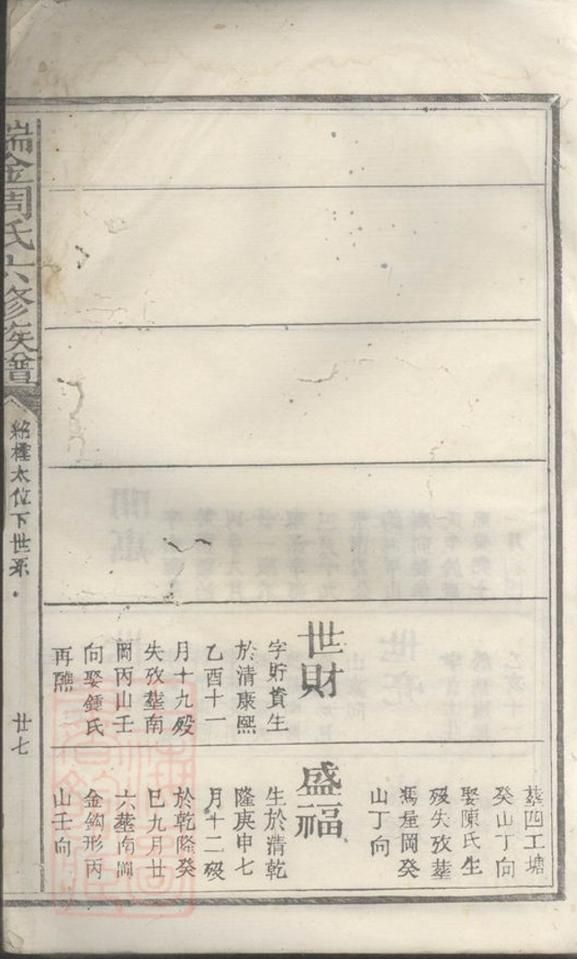 葬四工塘
癸山丁向
娶陳氏生
歿失攷葬
馮屋岡癸
山丁向
世財
字貯賞生
於清康熙
乙酉十一
月十九歿
失攷葬南
岡丙山壬
向娶鍾氏
再醮
盛福
生於清乾
隆庚申七
月十二歿
於乾隆癸
巳九月廿
六葬南岡
金鈎形丙
山壬向
瑞金周氏六修族譜
太位下世系
廿七